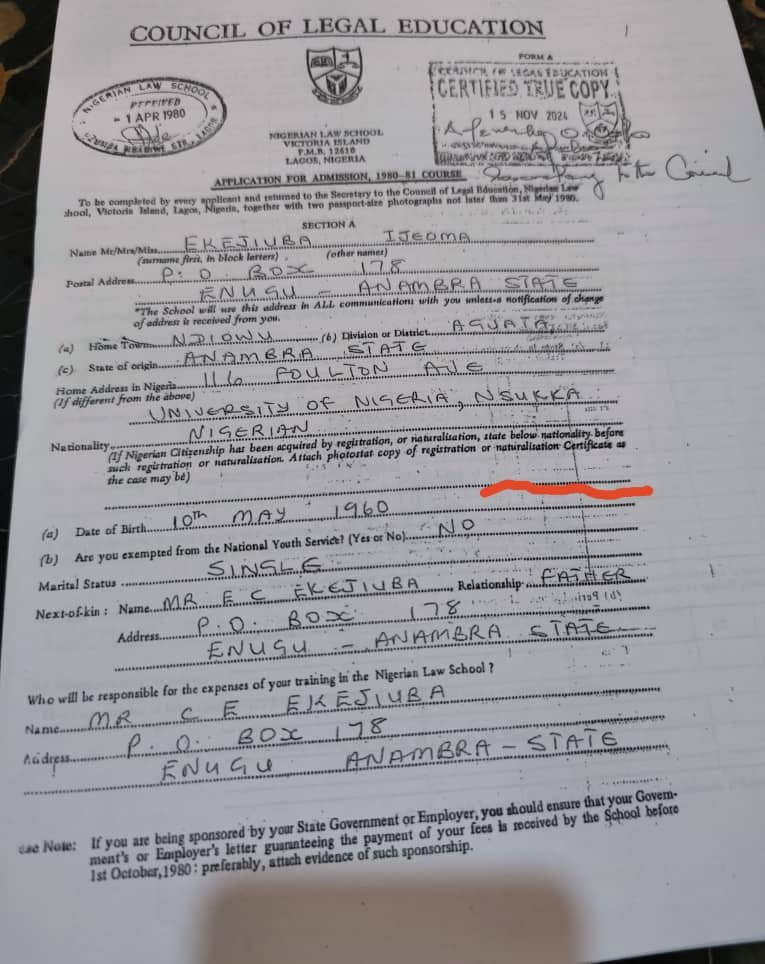 COUNCIL OF LEGAL EDUCATION
FORM A
NIGERIAN LAW SCHOOL
RECEIVED
- 1 APR 1980
COUNCIL OF LEGAL EDUCATION
CERTIFIED TRUE COPY
15 NOV 2024
Secretary to the Council
NIGERIAN LAW SCHOOL
VICTORIA ISLAND
P.M.B. 12610
LAGOS, NIGERIA
APPLICATION FOR ADMISSION, 1980-81 COURSE
To be completed by every applicant and returned to the Secretary to the Council of Legal Education, Nigerian Law
chool, Victoria Island, Lagos, Nigeria, together with two passport-size photographs not later than 31st May 1980.
SECTION A
Name Mr/Mrs/Miss EKEJIUBA IJEOMA
(surname first, in block letters) (other names)
Postal Address P.O. BOX 178
ENUGU - ANAMBRA STATE
*The School will use this address in ALL communications with you unless a notification of change
of address is received from you.
(a) Home Town NDIOWU (b) Division or District AGUATA
(c) State of origin ANAMBRA STATE
Home Address in Nigeria 116 FOULTON AVE
(If different from the above)
UNIVERSITY OF NIGERIA, NSUKKA
Nationality NIGERIAN
(If Nigerian Citizenship has been acquired by registration, or naturalisation, state below nationality before
such registration or naturalisation. Attach photostat copy of registration or naturalisation Certificate as
the case may be)
(a) Date of Birth 10TH MAY 1960
(b) Are you exempted from the National Youth Service? (Yes or No) NO
Marital Status SINGLE
Next-of-kin : Name MR E C EKEJIUBA, Relationship FATHER
Address P.O. BOX 178
ENUGU - ANAMBRA STATE
Who will be responsible for the expenses of your training in the Nigerian Law School ?
Name MR C E EKEJIUBA
Address P.O. BOX 178
ENUGU ANAMBRA - STATE
ase Note: If you are being sponsored by your State Government or Employer, you should ensure that your Govern-
ment's or Employer's letter guaranteeing the payment of your fees is received by the School before
1st October, 1980 : preferably, attach evidence of such sponsorship.